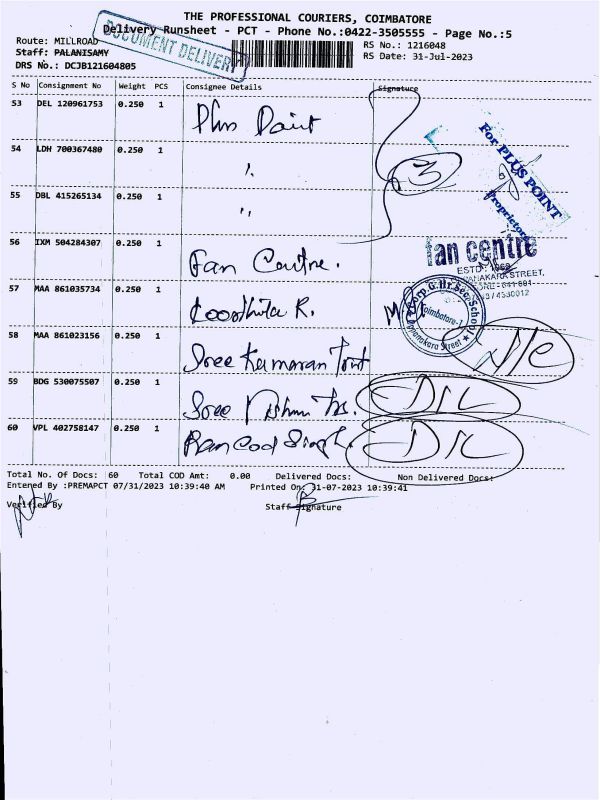 THE PROFESSIONAL COURIERS, COIMBATORE
Delivery Runsheet - PCT - Phone No.:0422-3505555 - Page No.:5
DOCUMENT DELIVERY
Route: MILLROAD
RS No.: 1216048
Staff: PALANISAMY
RS Date: 31-Jul-2023
DRS No.: DCJB121604805
S No Consignment No Weight PCS Consignee Details Signature
53 DEL 120961753 0.250 1 Plus Point
54 LDH 700367480 0.250 1 "
3
For PLUS POINT
Proprietor
55 DBL 415265134 0.250 1 "
56 IXM 504284307 0.250 1 Fan Centre.
fan centre
ESTD: 1969
57 MAA 861035734 0.250 1 R.
Corp.G.Hr.Sec.School
Coimbatore-1
Oppanakara Street
58 MAA 861023156 0.250 1 Sree Kumaran
59 BDG 530075507 0.250 1 Sree Vishnu D/L
60 VPL 402758147 0.250 1 Singh. D/L
Total No. Of Docs: 60 Total COD Amt: 0.00 Delivered Docs: Non Delivered Docs:
Entered By :PREMAPCT 07/31/2023 10:39:40 AM Printed On: 31-07-2023 10:39:41
Verified By Staff Signature